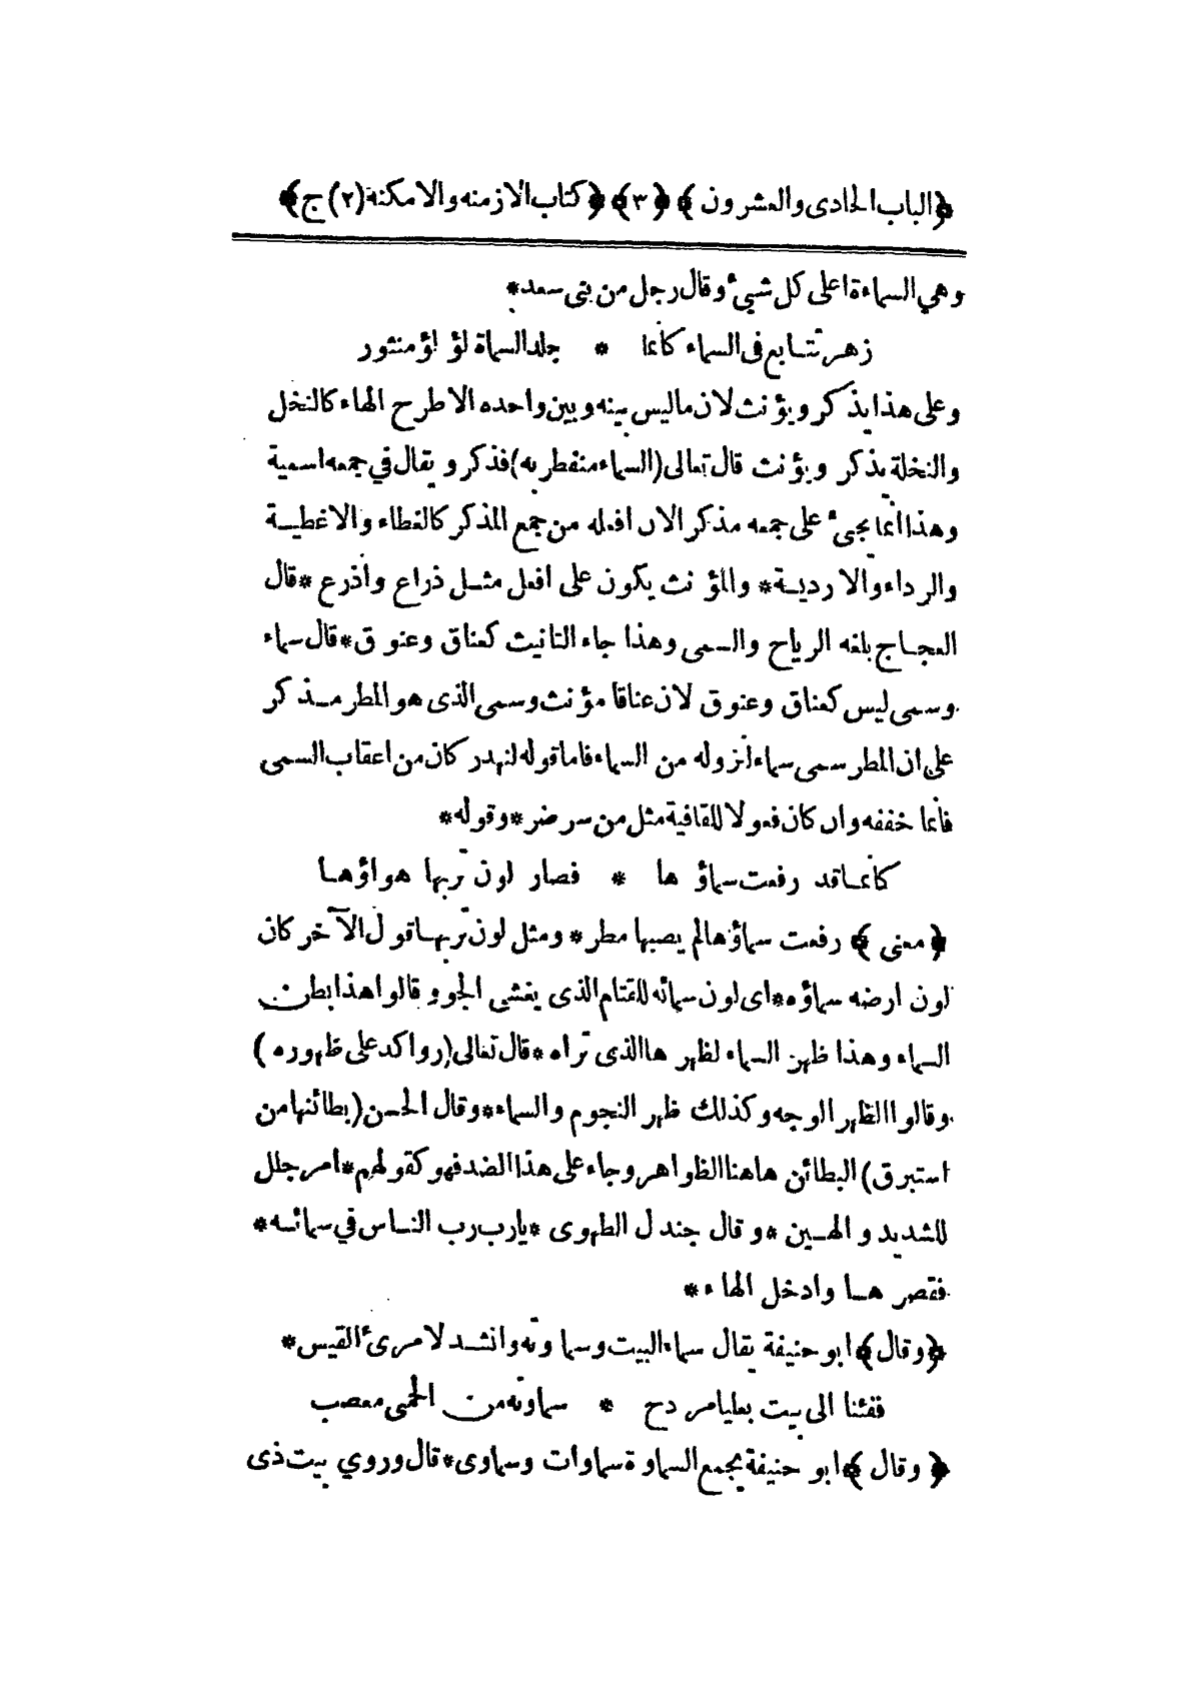 ﴿الباب الحادى والعشرون﴾ ﴿٣﴾ ﴿كتاب الازمنه والامكنه(٢)ج﴾
وهي السماءة اعلى كل شيئ وقال رجل من بنى سعد*
زهر تتابع فى السماء كأنما * جلد السماة لؤلؤ منثور
وعلى هذا يذكر ويؤنث لان ماليس بينه وبين واحده الا طرح الهاء كالنخل
والنخلة يذكر ويؤنث قال تعالى (السماء منفطر به) فذكر ويقال في جمعه اسمية
وهذا انما يجيئ على جمعه مذكر الان افعله من جمع المذكر كالغطاء والاغطيـة
والرداء والارديـة* والمؤنث يكون على افعل مثـل ذراع واذرع *قال
العجـاج بلغه الرياح والسمى وهذا جاء التانيث كعناق وعنوق*قال سماء
وسمى ليس كعناق وعنوق لان عناقا مؤنث وسمى الذى هو المطر مـذكر
على ان المطر سمى سماء لنزوله من السماء فاما قوله لنهدر كان من اعقاب السمى
فانما خففه وان كان فعولا للقافية مثل من سر ضر*وقوله*
كأنمـا قد رفعت سماؤها * فصار لون تربها هواؤهـا
﴿معنى﴾ رفعت سماؤها لم يصبها مطر* ومثل لون تربهـا قول الآخر كان
لون ارضه سماؤه*اى لون سمائه للقتام الذى يغشى الجو وقالوا هذا بطن
السماء وهذا ظهر السماء لظهرها الذى تراه *قال تعالى (رواكد على ظهوره)
وقالوا الظهر الوجه وكذلك ظهر النجوم والسماء*وقال الحسن (بطائنها من
استبرق) البطائن هاهنا الظواهر وجاء على هذا الضد فهو كقولهم*امر جلل
للشديد والهـين *وقال جندل الطهوى *يارب رب النـاس في سمائـه*
فقصر هـا وادخل الهاء*
﴿وقال﴾ ابو حنيفة يقال سماء البيت وسماوته وانشـد لامرئ القيس*
ففئنا الى بيت بعلياء مردح * سماوته من الحمى معصب
﴿وقال﴾ ابو حنيفة يجمع السماوة سماوات وسماوى*قال وروي بيت ذى